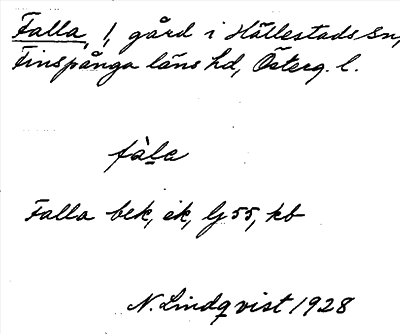 Falla, 1, gård i Hällestads sn,
Finspånga läns hd, Österg. l.
fàla
Falla bek, ek, lj 55, kb
N. Lindqvist 1928